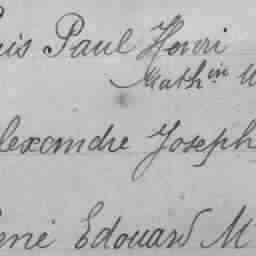 uis Paul Henri
Math in
lexandre Joseph
ené Edouard M